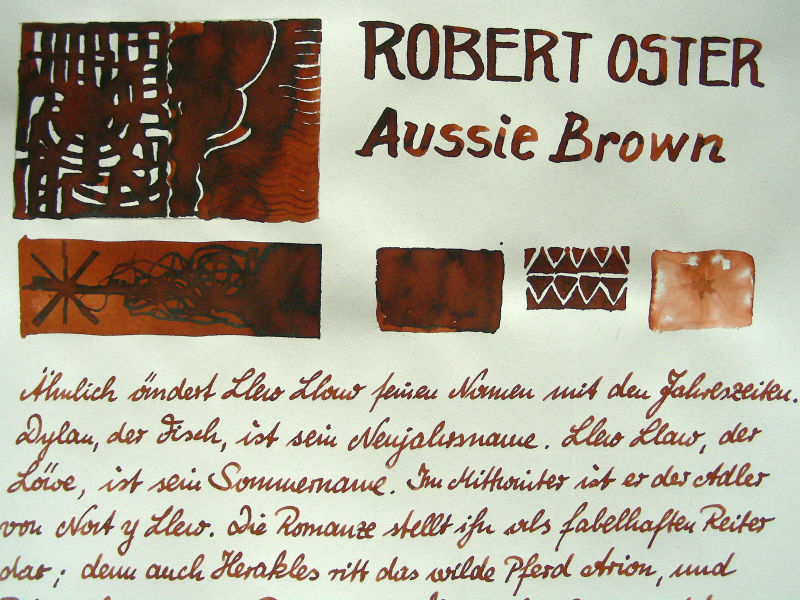 ROBERT OSTER
Aussie Brown
Ähnlich ändert Llew Llaw seinen Namen mit den Jahreszeiten.
Dylan, der Fisch, ist sein Neujahrsname. Llew Llaw, der
Löwe, ist sein Sommername. Im Mittwinter ist er der Adler
von Nant y Llew. Die Romanze stellt ihn als fabelhaften Reiter
dar; denn auch Herakles ritt das wilde Pferd Arion, und